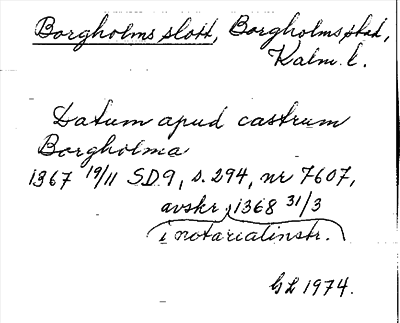 Borgholms slott, Borgholms stad,
Kalm. l.
Datum apud castrum
Borgholma
1367 19/11 S.D.9, s. 294, nr 7607,
avskr. 1368 31/3
i notariatinstr.
GL 1974.